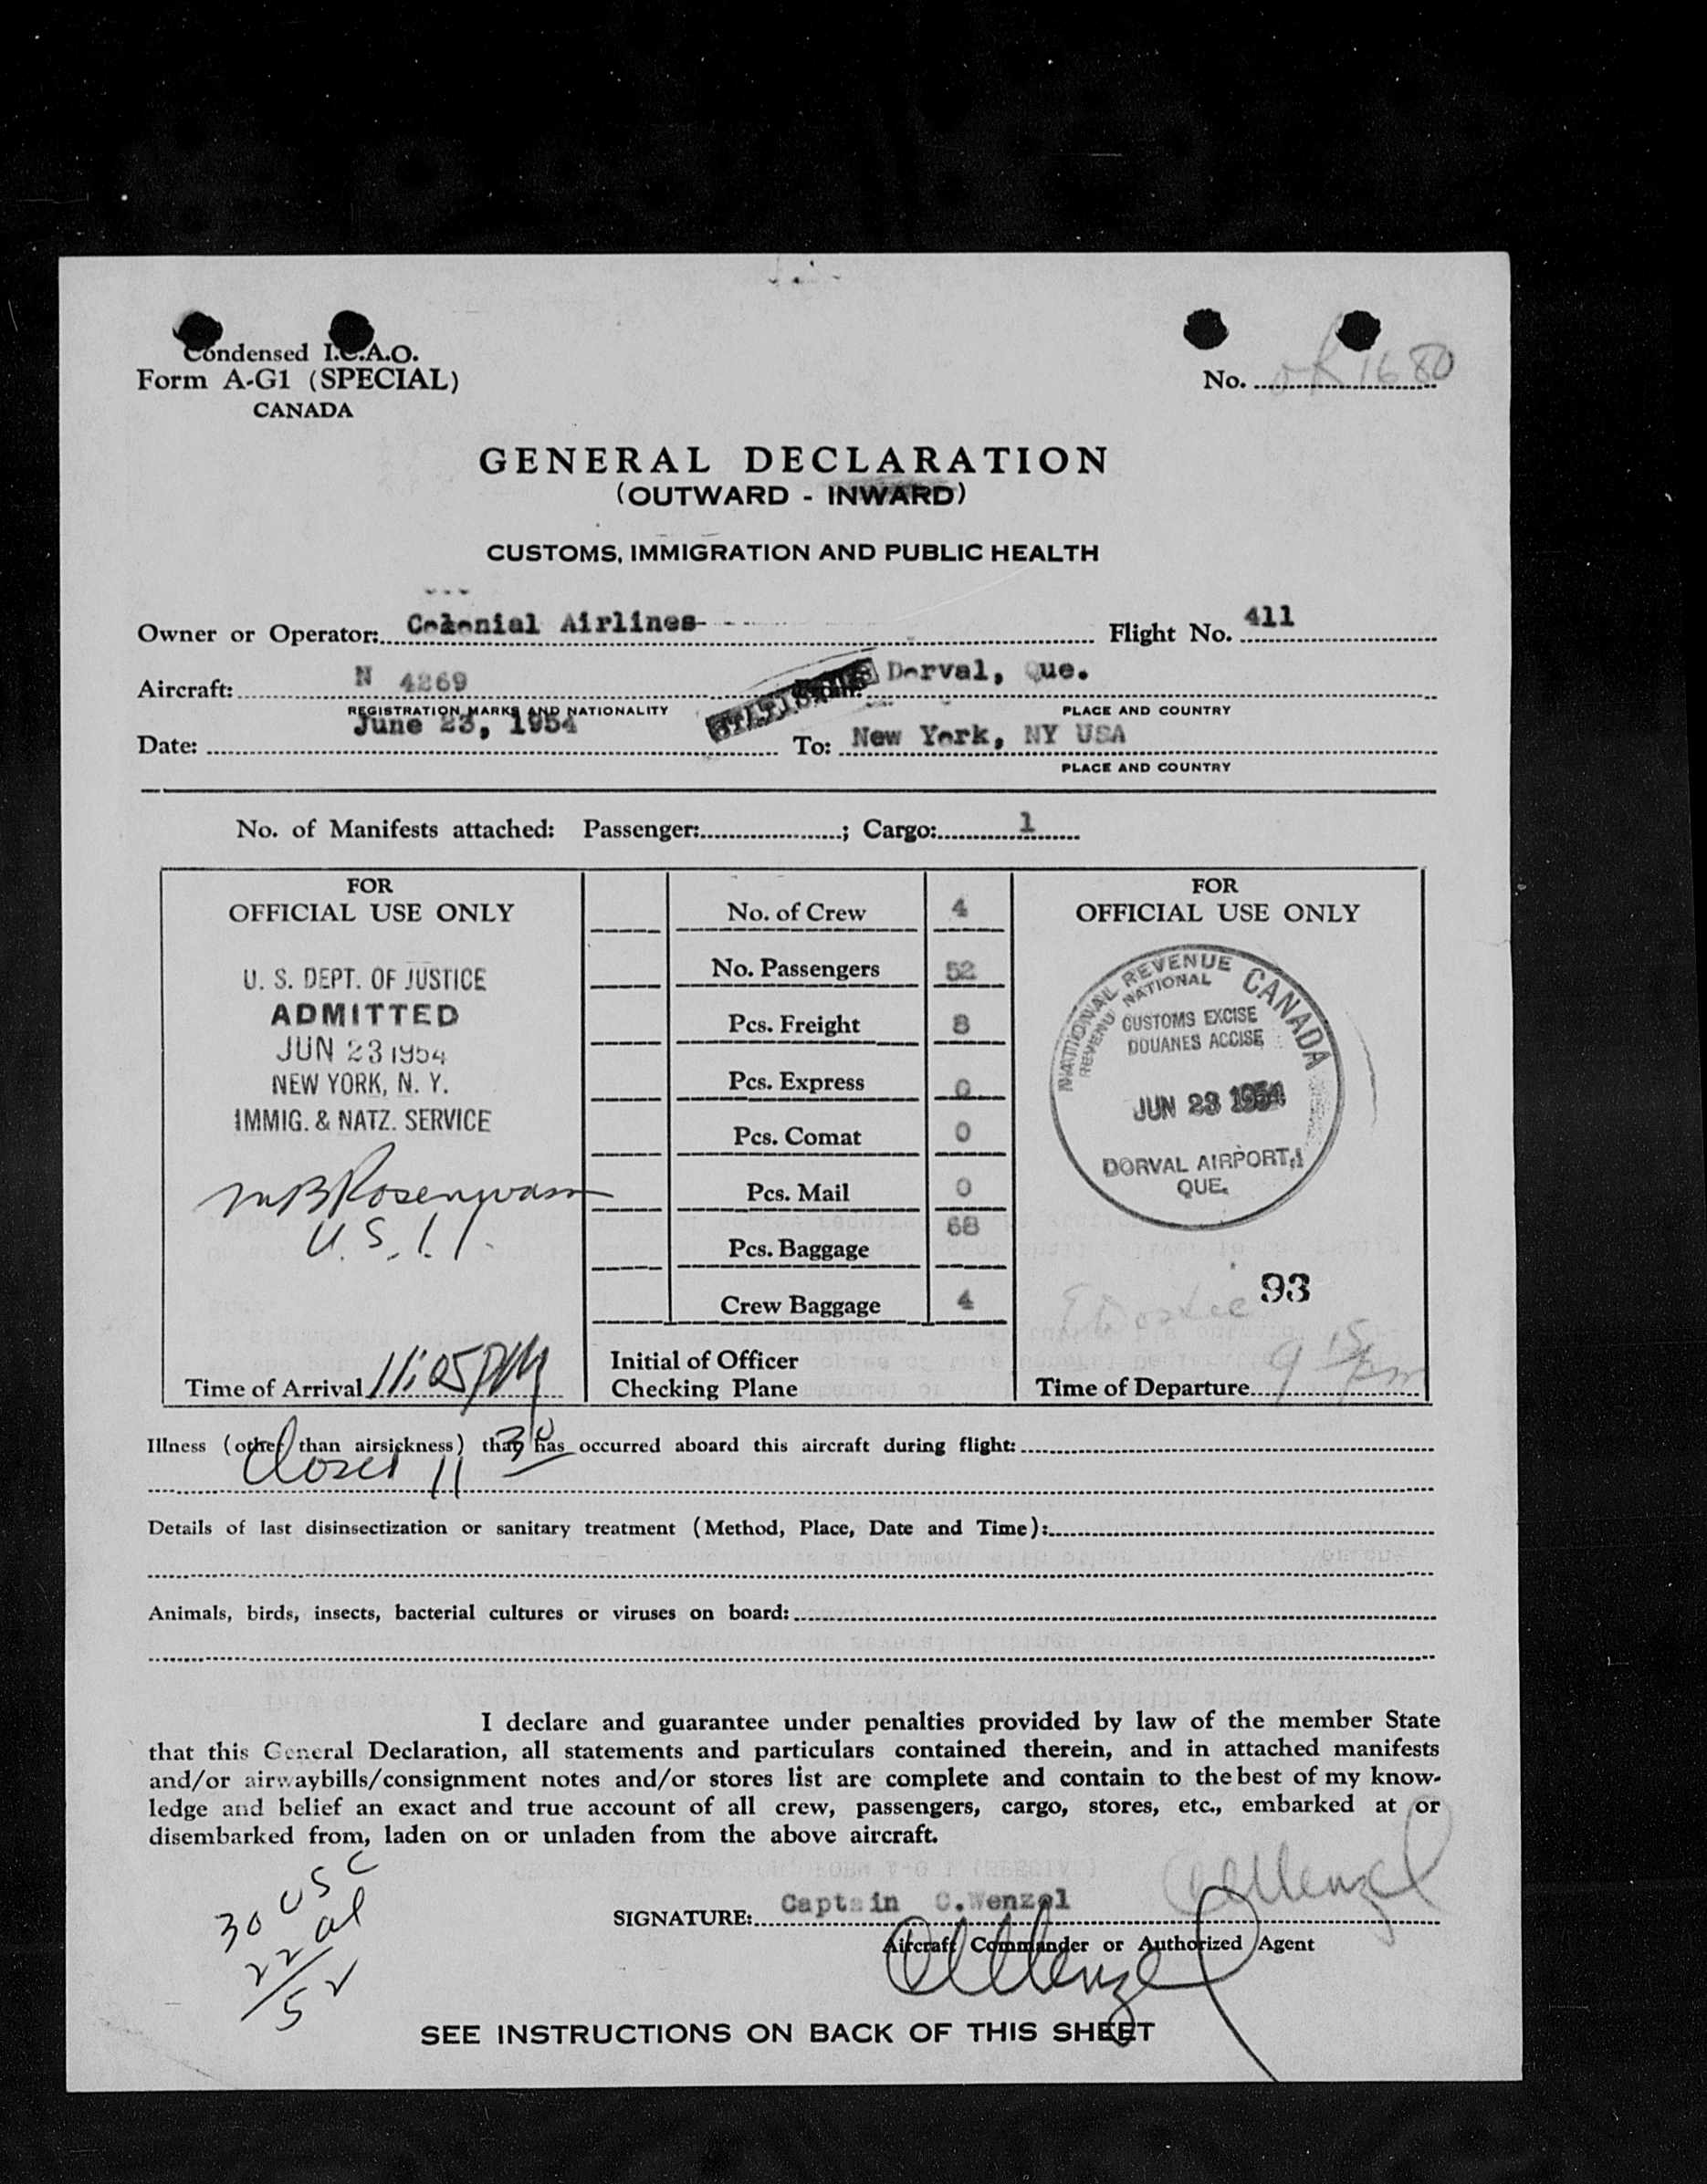 Condensed I.C.A.O.
Form A-G1 (SPECIAL)
CANADA
No. OK 1680
GENERAL DECLARATION
(OUTWARD - INWARD)
CUSTOMS, IMMIGRATION AND PUBLIC HEALTH
Owner or Operator: Colonial Airlines Flight No. 411
Aircraft: N 4269 Dorval, Que.
REGISTRATION MARKS AND NATIONALITY PLACE AND COUNTRY
Date: June 23, 1954 To: New York, NY USA
PLACE AND COUNTRY
No. of Manifests attached: Passenger: ; Cargo: 1
FOR
OFFICIAL USE ONLY
U. S. DEPT. OF JUSTICE
ADMITTED
JUN 23 1954
NEW YORK, N. Y.
IMMIG. & NATZ. SERVICE
U.S.I.I.
Time of Arrival 11:05 PM
No. of Crew 4
No. Passengers 52
Pcs. Freight 8
Pcs. Express 0
Pcs. Comat 0
Pcs. Mail 0
Pcs. Baggage 68
Crew Baggage 4
Initial of Officer
Checking Plane
FOR
OFFICIAL USE ONLY
NATIONAL REVENUE CANADA
REVENU NATIONAL
CUSTOMS EXCISE
DOUANES ACCISE
JUN 23 1954
DORVAL AIRPORT,
QUE.
93
Time of Departure 9 15 pm
Illness (other than airsickness) that has occurred aboard this aircraft during flight:
Closed 11 30
Details of last disinsectization or sanitary treatment (Method, Place, Date and Time):
Animals, birds, insects, bacterial cultures or viruses on board:
I declare and guarantee under penalties provided by law of the member State
that this General Declaration, all statements and particulars contained therein, and in attached manifests
and/or airwaybills/consignment notes and/or stores list are complete and contain to the best of my know-
ledge and belief an exact and true account of all crew, passengers, cargo, stores, etc., embarked at or
disembarked from, laden on or unladen from the above aircraft.
30 USC
22 al
52
SIGNATURE: Captain C.Wenzel
Aircraft Commander or Authorized Agent
SEE INSTRUCTIONS ON BACK OF THIS SHEET